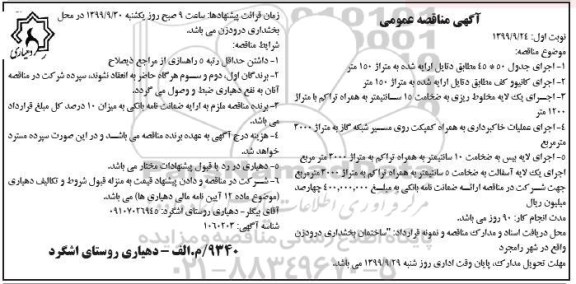 آگهی مناقصه عمومی
نوبت اول: ۱۳۹۹/۹/۲۴
موضوع مناقصه:
۱-اجرای جدول ۵۰ * ۴۵ مطابق دتایل ارایه شده به متراژ ۱۵۰ متر
۲-اجرای کانیوو کف مطابق دتایل ارایه شده به متراژ ۱۵۰ متر
۳-اجرای یک لایه مخلوط ریزی به ضخامت ۱۵ سانتیمتر به همراه تراکم با متراژ
۱۲۰۰ متر
۴-اجرای عملیات خاکبرداری به همراه کمپکت روی مسیر شبکه گاز به متراژ ۳۰۰۰
مترمربع
۵-اجرای لایه بیس به ضخامت ۱۰ سانتیمتر به همراه تراکم به متراژ ۳۰۰۰ متر مربع
اجرای یک لایه آسفالت به ضخامت ۵ سانتیمتر به همراه تراکم به متراژ ۳۰۰۰ مترمربع
جهت شرکت در مناقصه ارائه ضمانت نامه بانکی به مبلغ ۴۰۰,۰۰۰,۰۰۰ چهارصد
میلیون ریال
مدت انجام کار: ۹۰ روز می باشد.
محل دریافت اسناد و مدارک مناقصه و نمونه قرارداد: "ساختمان بخشداری درودزن
واقع در شهر رامجرد
مهلت تحویل مدارک، پایان وقت اداری روز شنبه ۱۳۹۹/۹/۲۹ می باشد.
زمان قرائت پیشنهادها: ساعت ۹ صبح روز یکشنبه ۱۳۹۹/۹/۳۰ در محل
بخشداری درودزن می باشد.
شرایط مناقصه:
۱-داشتن حداقل رتبه ۵ راهسازی از مراجع ذیصلاح
۲-برندگان اول، دوم و سوم هرگاه حاضر به انعقاد نشوند، سپرده شرکت در مناقصه
آنان به نفع دهیاری ضبط و وصول می گردد.
۳-برنده مناقصه ملزم به ارایه ضمانت نامه بانکی به میزان ۱۰ درصد کل مبلغ قرارداد
می باشد.
۴-هزینه درج آگهی به عهده برنده مناقصه می باشد و در این صورت سپرده مسترد
خواهد شد.
۵-دهیاری در رد یا قبول پیشنهادات مختار می باشد.
۶-شرکت در مناقصه و دادن پیشنهاد قیمت به منزله قبول شروط و تکالیف دهیاری
(موضوع ماده ۱۲ آیین نامه مالی دهیاری ها) می باشد.
آقای بیگلر - دهیاری روستای اشگرد: ۰۹۱۰۷۰۲۶۹۴۵
شناسه آگهی: ۱۰۶۰۲۰۳
۹۳۴۰/م.الف - دهیاری روستای اشگرد
دهیاری
۰۲۱-۸۸۳۴۹۶۷۰-۵